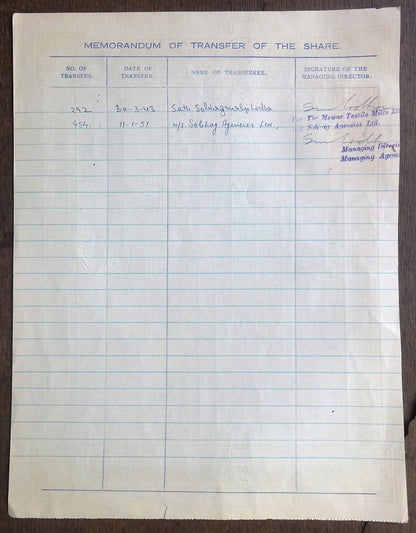 MEMORANDUM OF TRANSFER OF THE SHARE.
NO. OF TRANSFER. DATE OF TRANSFER. NAME OF TRANSFEREE. SIGNATURE OF THE MANAGING DIRECTOR.
292 30-3-43 Seth Sobhagmalji Lodha
454 11-1-51 M/s Sobhag Agencies Ltd,
For The Mewar Textile Mills
Sobhag Agencies Ltd.
Managing
Managing